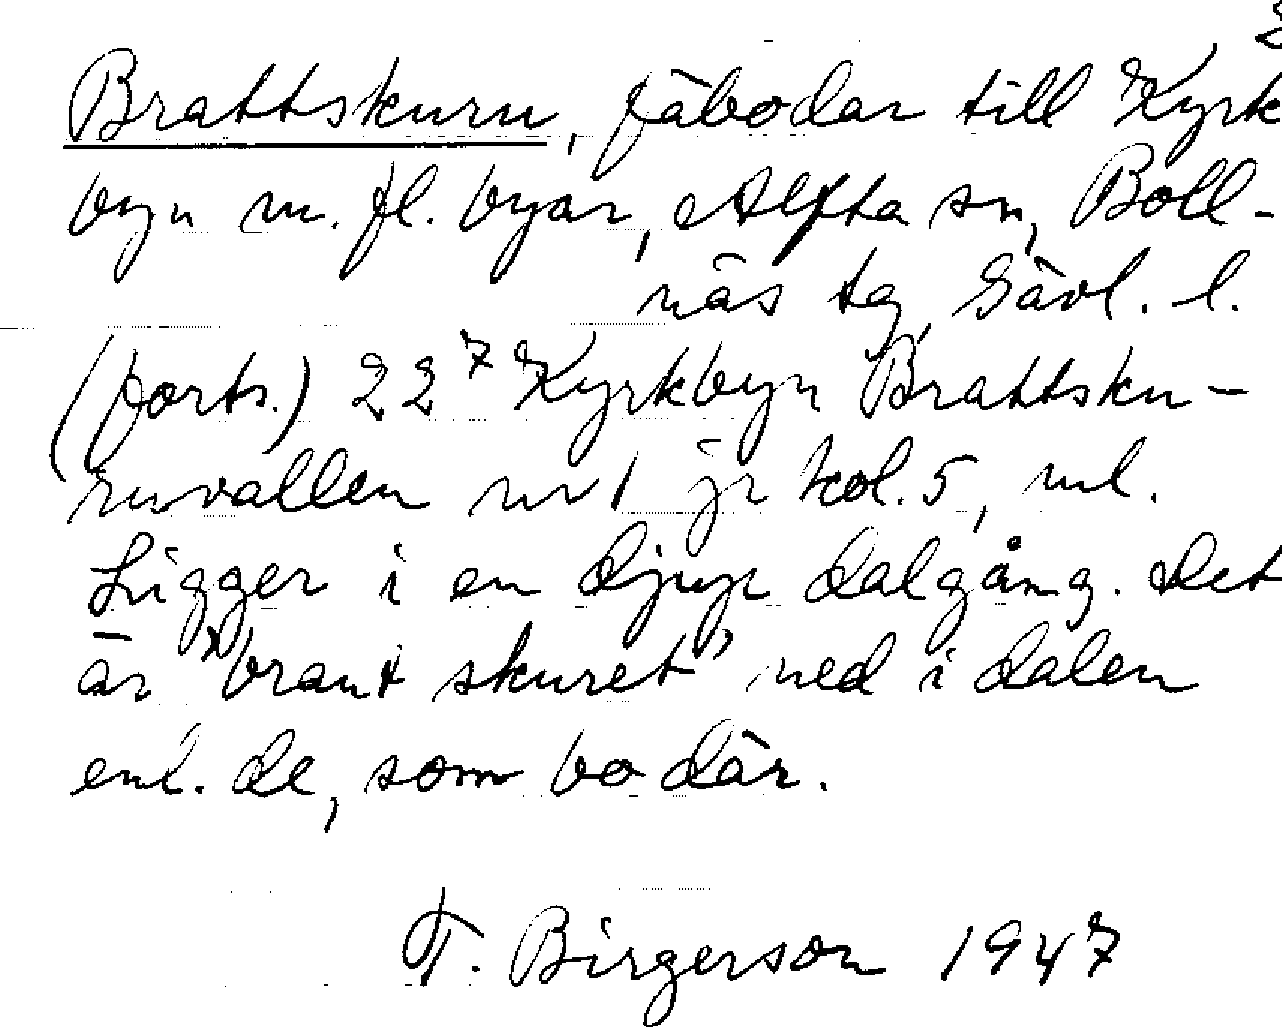 Brattskuru, fäbodar till Kyrk
byn m. fl. byar, Alfta sn, Boll-
näs tg, Gävl. l.
(forts.) 22⁷ Kyrkbyn Brattsku-
ruvallen nr 1 jr kol. 5, ml.
Ligger i en djup dalgång. Det
är "brant skuret" ned i dalen
enl. de, som bo där.
F. Birgerson 1947